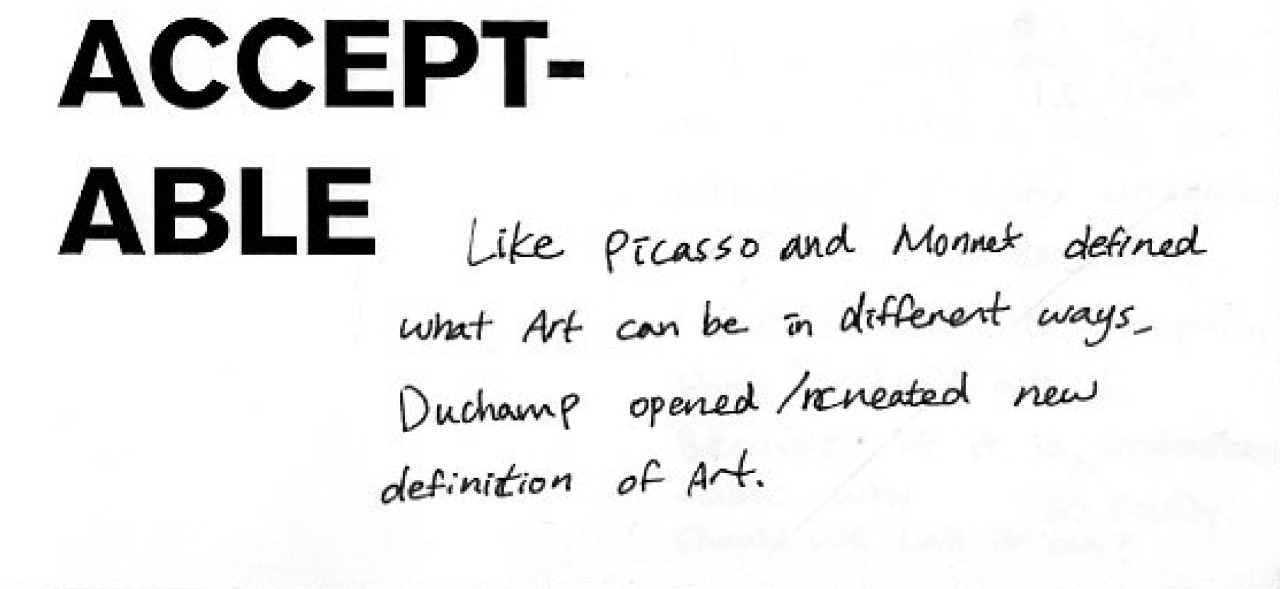 ACCEPT-
ABLE
Like Picasso and Monnet defined
what Art can be in different ways_
Duchamp opened /recreated new
definition of Art.